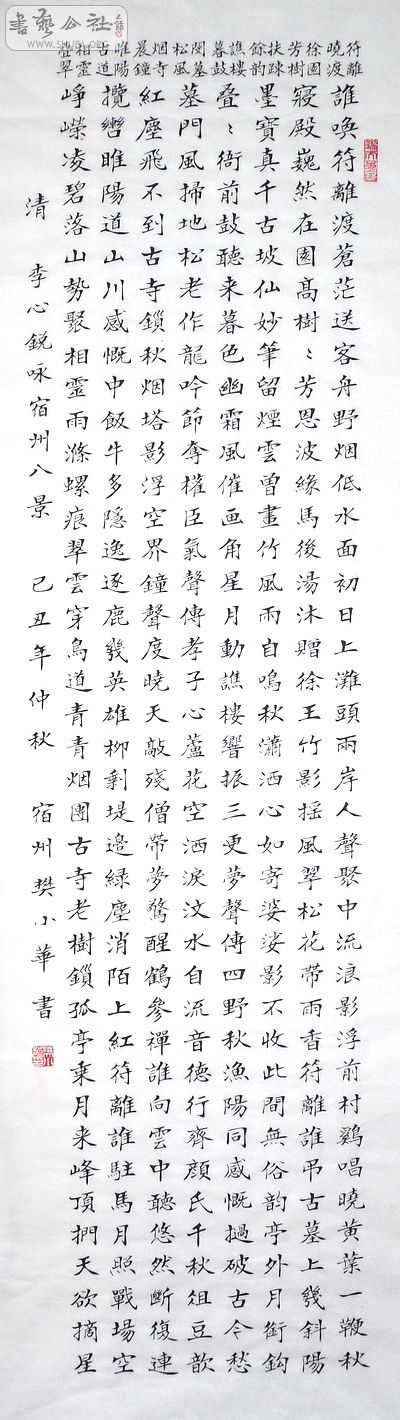 符離曉渡
徐園芳樹
扶疎餘韵
譙樓暮鼓
閔墓松風
烟寺晨鐘
睢陽古道
相靈疊翠
誰喚符離渡蒼茫送客舟野烟低水面初日上灘頭兩岸人聲聚中流浪影浮前村鷄唱曉黄葉一鞭秋
寢殿巍然在園高樹〻芳恩波緣馬後湯沐贈徐王竹影摇風翠松花帶雨香符離誰弔古墓上幾斜陽
墨寶真千古坡仙妙筆留煙雲曾畫竹風雨自鳴秋瀟洒心如寄婆娑影不收此間無俗韵亭外月銜鈎
叠〻衙前鼓聽来暮色幽霜風催画角星月動譙樓響振三更夢聲傳四野秋漁陽同感慨撾破古今愁
墓門風掃地松老作龍吟節奪權臣氣聲傳孝子心蘆花空洒淚汶水自流音德行齊顔氏千秋俎豆歆
紅塵飛不到古寺鎖秋烟塔影浮空界鐘聲度曉天敲殘僧帶夢驚醒鶴參禪誰向雲中聽悠然斷復連
攬轡睢陽道山川感慨中飯牛多隱逸逐鹿幾英雄柳剩堤邉緑塵消陌上紅符離誰駐馬月照戰場空
崢嶸凌碧落山勢聚相靈雨滌螺痕翠雲穿鳥道青青烟團古寺老樹鎖孤亭乗月来峰頂捫天欲摘星
清 李心鋭咏宿州八景 己丑年仲秋 宿州樊小華書
書藝公社